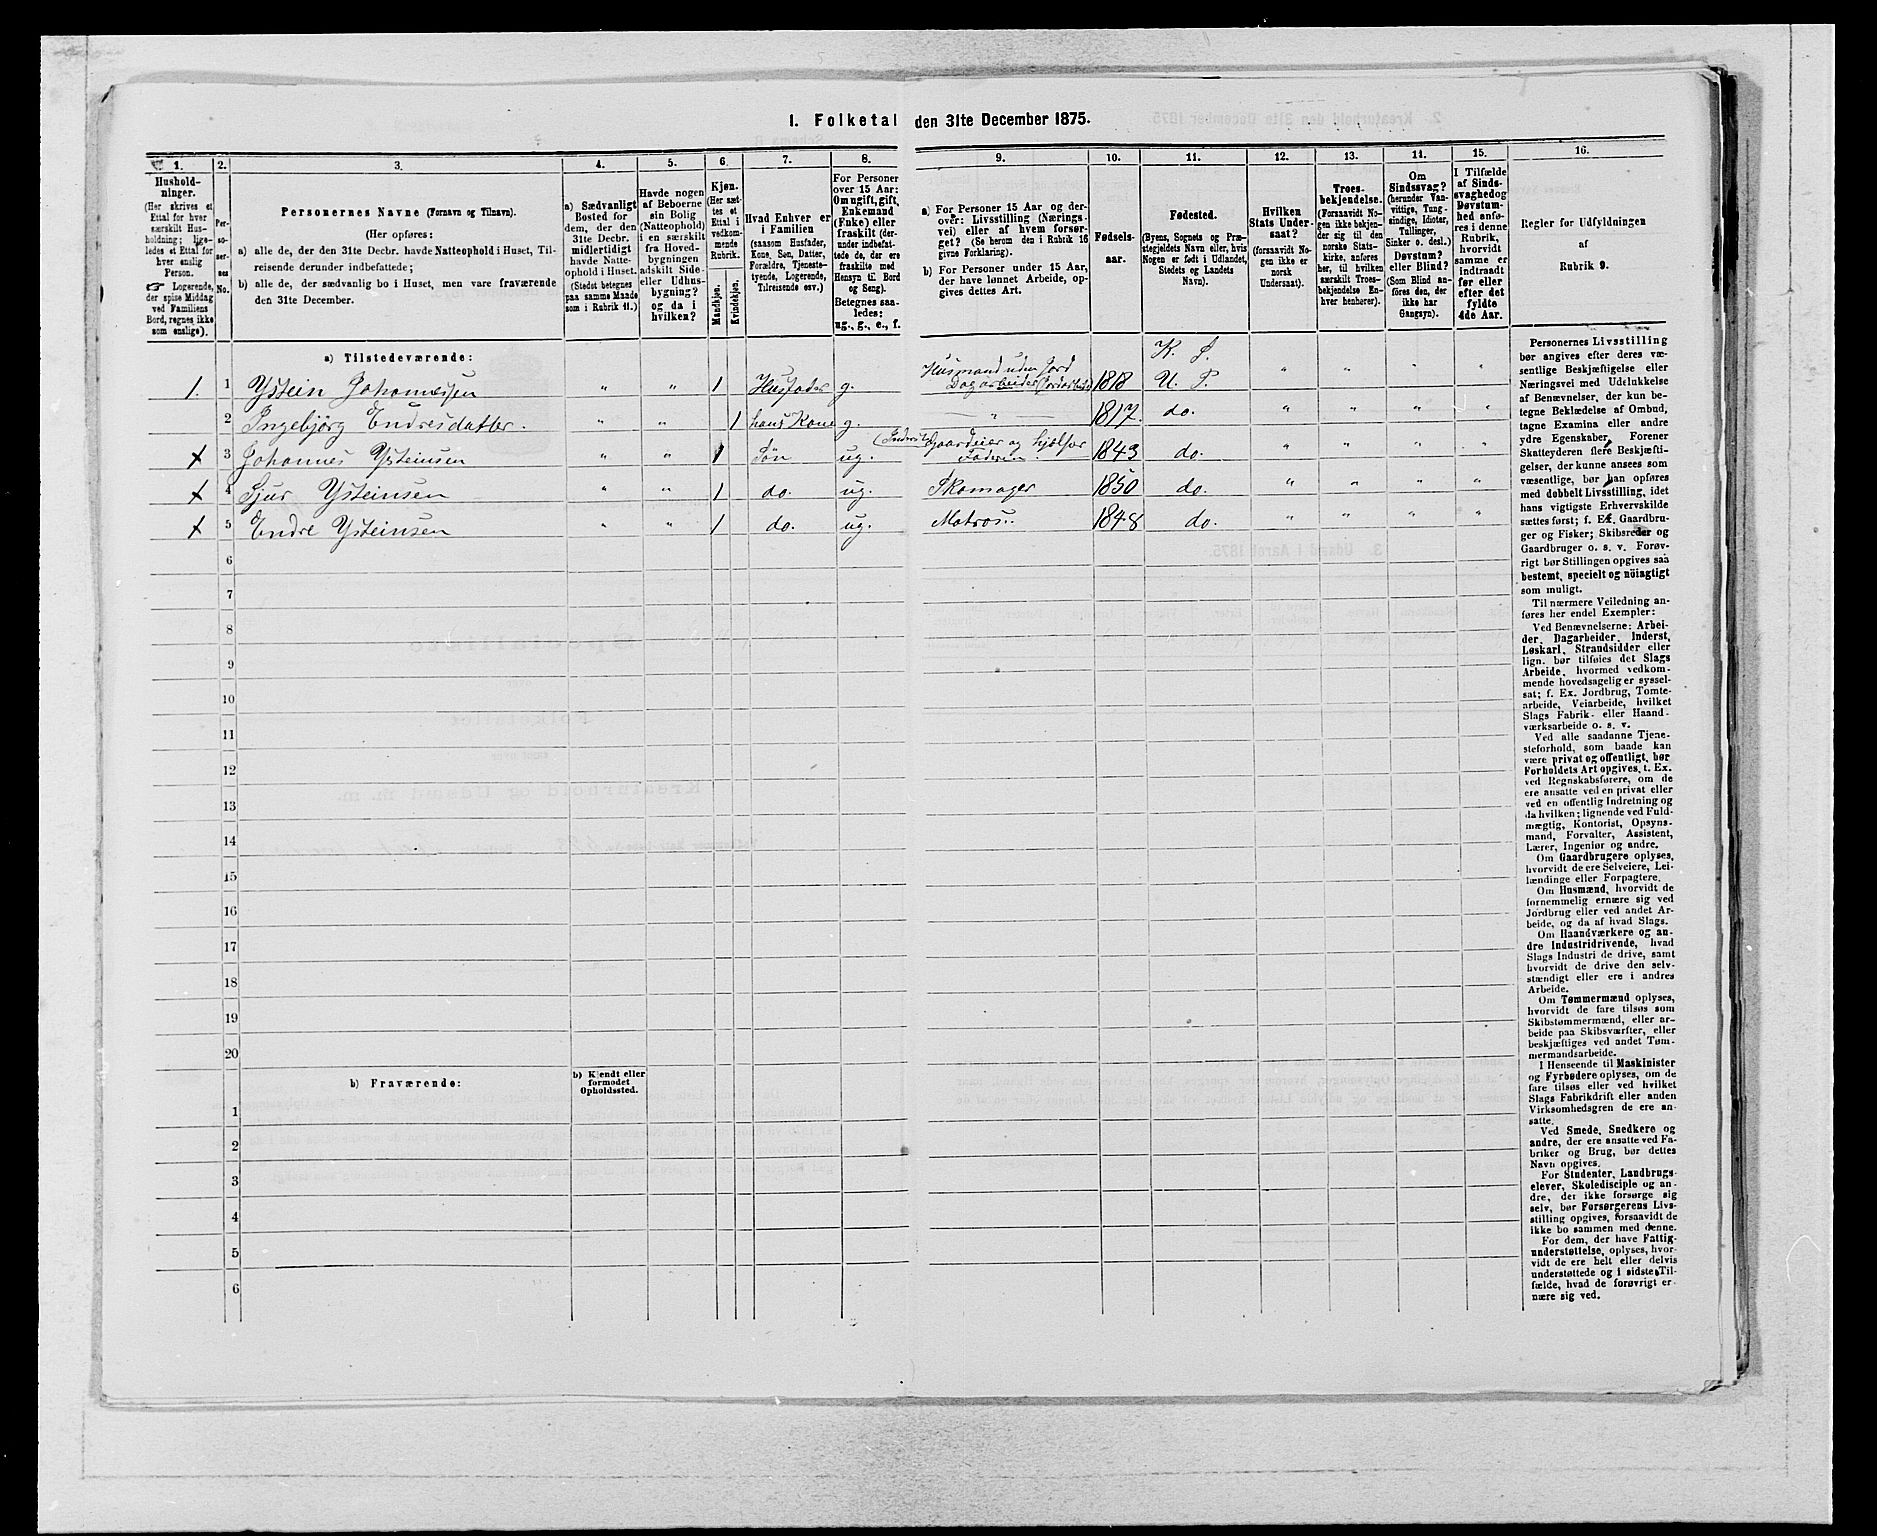 1. Folketal den 31te December 1875.
1.
Hushold-
ninger.
(Her skrives et
Ettal for hver
særskilt Hus-
holdning; lige-
ledes et Ettal for
hver enslig
Person.
☞ Logerende,
der spise Middag
ved Familiens
Bord, regnes ikke
som enslige).
2.
Per-
so-
ner-
nes
No.
3.
Personernes Navne (Fornavn og Tilnavn).
(Her opføres:
a) alle de, der den 31te Decbr. havde Natteophold i Huset, Til-
reisende derunder indbefattede;
b) alle de, der sædvanlig bo i Huset, men vare fraværende
den 31te December.
4.
a) Sædvanligt
Bosted for
dem, der den
31te Decbr.
midlertidigt
havde Natte-
ophold i Huset.
(Stedet betegnes
paa samme Maade
som i Rubrik 11.)
5.
Havde nogen
af Beboerne
sin Bolig
(Natteophold)
i en særskilt
fra Hoved-
bygningen
adskilt Side-
eller Udhus-
bygning?
og da i
hvilken?
6.
Kjøn.
(Her sæt-
tes et
Ettal i
vedkom-
mende
Rubrik.
Mandkjøn.
Kvindekjøn.
7.
Hvad Enhver er
i Familien
(saasom Husfader,
Kone, Søn, Datter,
Forældre, Tjeneste-
tyende, Logerende,
Tilreisende osv.)
8.
For Personer
over 15 Aar:
Om ugift, gift,
Enkemand
(Enke) eller
fraskilt (der-
under indbefat-
tede de, der ere
fraskilte med
Hensyn til Bord
og Seng).
Betegnes saa-
ledes:
ug., g., e., f.
9.
a) For Personer 15 Aar og der-
over: Livsstilling (Nærings-
vei) eller af hvem forsør-
get? (Se herom den i Rubrik 16
givne Forklaring).
b) For Personer under 15 Aar,
der have lønnet Arbeide, op-
gives dettes Art.
10.
Fødsels-
aar.
11.
Fødested.
(Byens, Sognets og Præ-
stegjeldets Navn eller, hvis
Nogen er født i Udlandet,
Stedets og Landets
Navn).
12.
Hvilken
Stats Under-
saat?
(forsaavidt No-
gen ikke er
norsk
Undersaat).
13.
Troes-
bekjendelse.
(Forsaavidt No-
gen ikke bekjen-
der sig til den
norske Stats-
kirke, anføres
her, til hvilken
særskilt Troes-
bekjendelse En-
hver henhører).
14.
Om
Sindssvag?
(herunder Van-
vittige, Tung-
sindige, Idioter,
Tullinger,
Sinker o. desl.)
Døvstum?
eller Blind?
(Som Blind an-
føres den, der
ikke har
Gangsyn).
15.
I Tilfælde
af Sinds-
svaghedog
Døvstum-
hed anfø-
res i denne
Rubrik,
hvorvidt
samme er
indtraadt
før eller
efter det
fyldte
4de Aar.
16.
Regler for Udfyldningen
af
Rubrik 9.
a) Tilstedeværende:
K. S.
1. 1 Ystein Johannessen " " 1 Husfader g. Husmand uden Jord Dagarbeider 1818 U. P. " " " "
2 Ingebjörg Endresdatter. " " 1 hans Kone g. " 1817. do. " " " "
3 Johannes Ysteinsen " " 1 Søn ug. Gaardeier og hjælper Faderen 1843 do. " " " "
4 Sjur Ysteinsen " " 1 do. ug. Skomager 1850 do. " " " "
5 Endre Ysteinsen " " 1 do. ug. Matros. 1848 do. " " " "
6
7
8
9
10
11
12
13
14
15
16
17
18
19
20
b) Fraværende:
b) Kjendt eller
formodet
Opholdssted.
1
2
3
4
5
6
Personernes Livsstilling
bør angives efter deres væ-
sentlige Beskjæftigelse eller
Næringsvei med Udelukkelse
af Benævnelser, der kun be-
tegne Beklædelse af Ombud,
tagne Examina eller andre
ydre Egenskaber. Forener
Skatteyderen flere Beskjæfti-
gelser, der kunne ansees som
væsentlige, bør han opføres
med dobbelt Livsstilling, idet
hans vigtigste Erhvervskilde
sættes først; f. Ex. Gaardbru-
ger og Fisker; Skibsreder og
Gaardbruger o. s. v. Forøv-
rigt bør Stillingen opgives saa
bestemt, specielt og nöiagtigt
som muligt.
Til nærmere Veiledning an-
føres her endel Exempler:
Ved Benævnelserne: Arbei-
der, Dagarbeider, Inderst,
Løskarl, Strandsidder eller
lign. bør tilføies det Slags
Arbeide, hvormed vedkom-
mende hovedsagelig er syssel-
sat; f. Ex. Jordbrug, Tomte-
arbeide, Veiarbeide, hvilket
Slags Fabrik- eller Haand-
værksarbeide o. s. v.
Ved alle saadanne Tjene-
steforhold, som baade kan
være privat og offentligt, bør
Forholdets Art opgives, t. Ex.
ved Regnskabsførere, om de
ere ansatte ved en privat eller
ved en offentlig Indretning og
da hvilken; lignende ved Fuld-
mægtig, Kontorist, Opsyns-
mand, Forvalter, Assistent,
Lærer, Ingeniør og andre.
Om Gaardbrugere oplyses,
hvorvidt de ere Selveiere, Lei-
lændinge eller Forpagtere.
Om Husmænd, hvorvidt de
fornemmelig ernære sig ved
Jordbrug eller ved andet Ar-
beide, og da af hvad Slags.
Om Haandværkere og an-
dre Industridrivende, hvad
Slags Industri de drive, samt
hvorvidt de drive den selv-
stændigt eller ere i andres
Arbeide.
Om Tømmermænd oplyses,
hvorvidt de fare tilsøs som
Skibstømmermænd, eller ar-
beide paa Skibsværfter, eller
beskjæftiges ved andet Tøm-
mermandsarbeide.
I Henseende til Maskinister
og Fyrbødere oplyses, om de
fare tilsøs eller ved hvilket
Slags Fabrikdrift eller anden
Virksomhedsgren de ere an-
satte.
Ved Smede, Snedkere og
andre, der ere ansatte ved Fa-
briker og Brug, bør dettes
Navn opgives.
For Studenter, Landbrugs-
elever, Skoledisciple og an-
dre, der ikke forsørge sig
selv, bør Forsørgerens Livs-
stilling opgives, forsaavidt de
ikke bo sammen med denne.
For dem, der have Fattig-
understøttelse, oplyses, hvor-
vidt de ere helt eller delvis
understøttede og i sidste Til-
fælde, hvad de forøvrigt er-
nære sig ved.